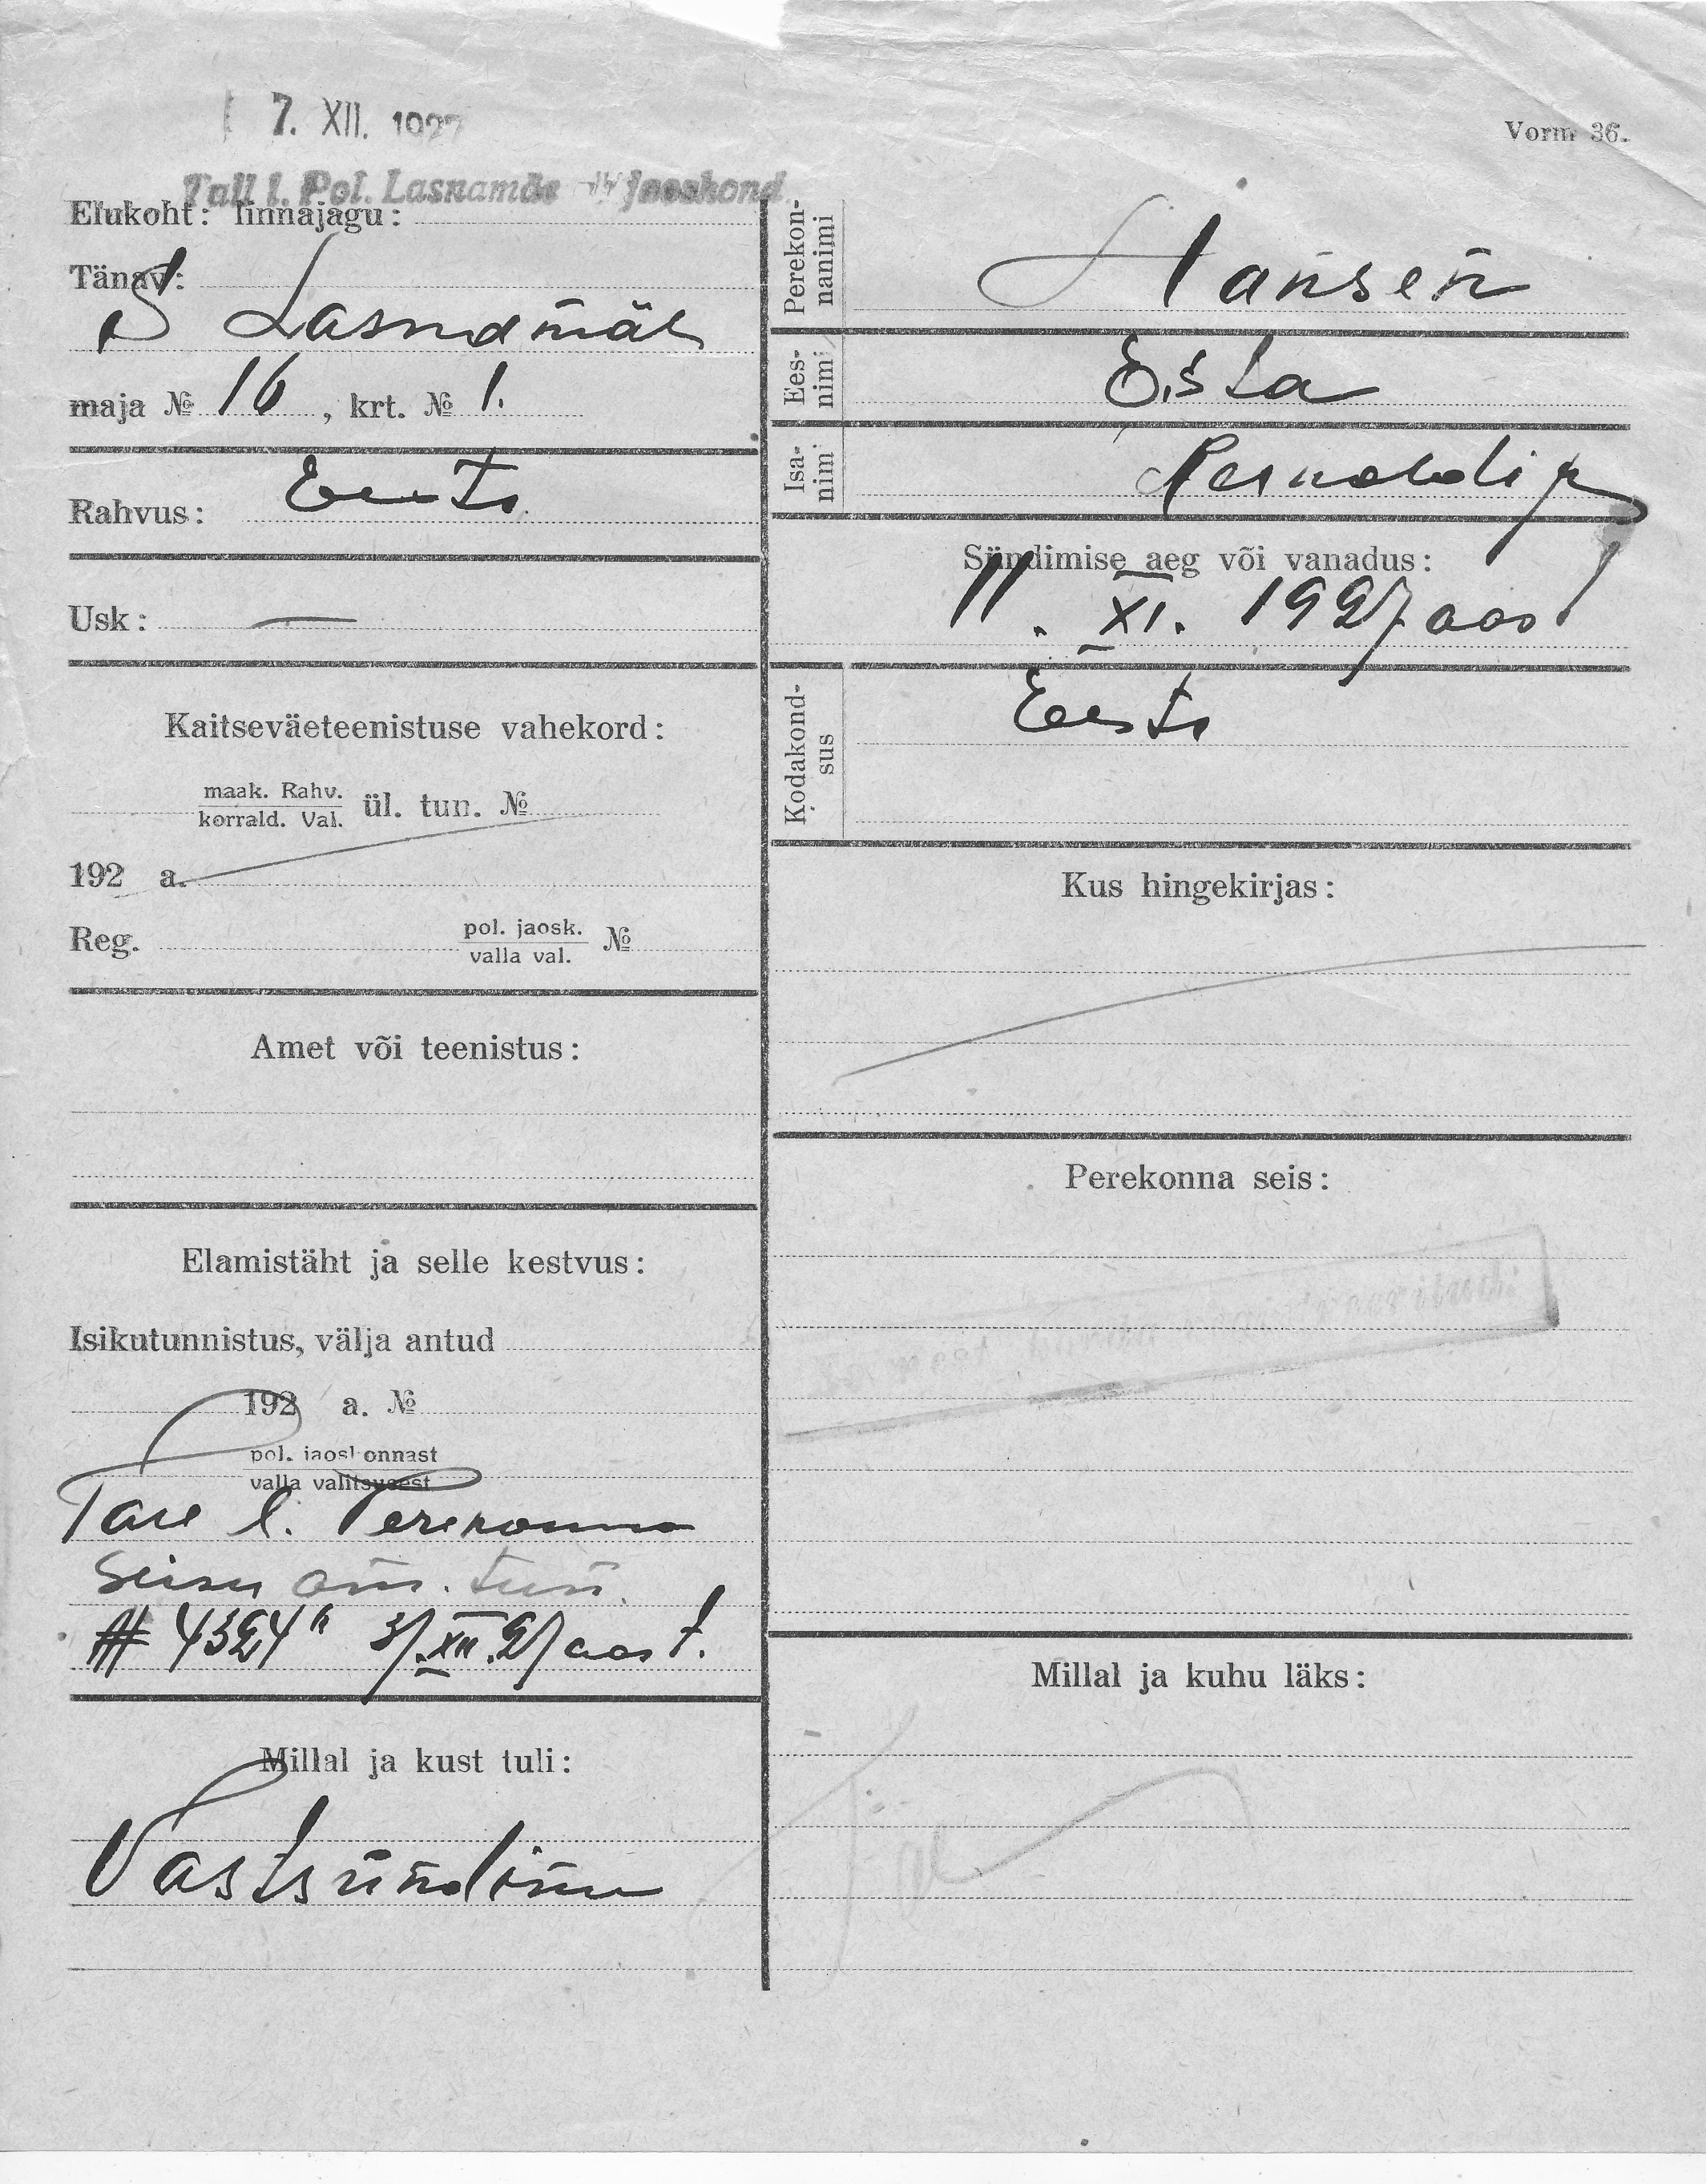 7. XII. 1927
Vorm 36.
Tall l. Pol. Lasnamäe jaoskond
Elukoht: linnajagu:
Tänav:
S Lasnamäe
maja № 16, krt. № 1.
Rahvus: Eesti
Usk: —
Kaitseväeteenistuse vahekord:
maak. Rahv.
korrald. Val. ül. tun. №
192 a.
Reg. pol. jaosk.
valla val. №
Amet või teenistus:
Elamistäht ja selle kestvus:
Isikutunnistus, välja antud
192 a. №
pol. jaoskonnast
valla valitsusest
l. Perekonna
Seisu am. tun.
# 4324 3/XII.27 aast.
Millal ja kust tuli:
Vastsündinu
Perekonnanimi
Hansen
Eesnimi
Isanimi
p
Sündimise aeg või vanadus:
11. XI. 1927 aast
Kodakondsus
Eesti
Kus hingekirjas:
Perekonna seis:
Millal ja kuhu läks: